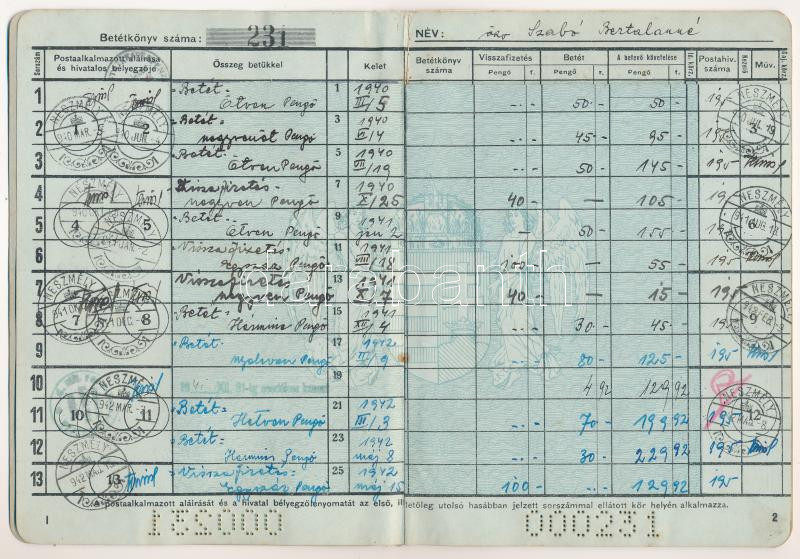 Betétkönyv száma: 231 NÉV: özv Szabó Bertalanné
Sorszám Postaalkalmazott aláírása és hivatalos bélyegzője Összeg betükkel Kelet Betétkönyv száma Visszafizetés Pengő f. Betét Pengő f. A betevő követelése Pengő f. Postahiv. száma Kezelő Müv.
1 Betét: Ötven Pengő 1 1940 III/5 50 - 50 - 195
2 Betét: negyvenöt Pengő 3 1940 VI/4 45 - 95 - 195
3 Betét: Ötven Pengő 5 1940 VII/19 50 - 145 - 195
4 Visszafizetés negyven Pengő 7 1940 X/25 40 - — 105 - 195
5 Betét: Ötven Pengő 9 1941 jan 2 50 155 - 195
6 Visszafizetés Egyszáz Pengő 11 1941 VIII/18 100 - — 55 - 195
7 Visszafizetés negyven Pengő 13 1941 X/7 40 - — 15 - 195
8 Betét: Hármínc Pengő 15 1941 XII/4 30 - 45 - 195
9 Betét: nyolcvan Pengő 17 1942 II/9 80 - 125 - 195
10 1941. XII. 31-ig esedékes kamat 19 4 92 129 92
11 Betét: Hetven Pengő 21 1942 III/3 70 - 199 92 195
12 Betét: Harminc Pengő 23 1942 máj 8 30 - 229 92 195
13 Visszafizetés Egyszáz Pengő 25 1942 máj 15 100 - 129 92 195
NESZMÉLY
A postaalkalmazott aláírását és a hivatal bélyegzőlenyomatát az első, illetőleg utolsó hasábban jelzett sorszámmal ellátott kör helyén alkalmazza.
1 000231 2
darabanth